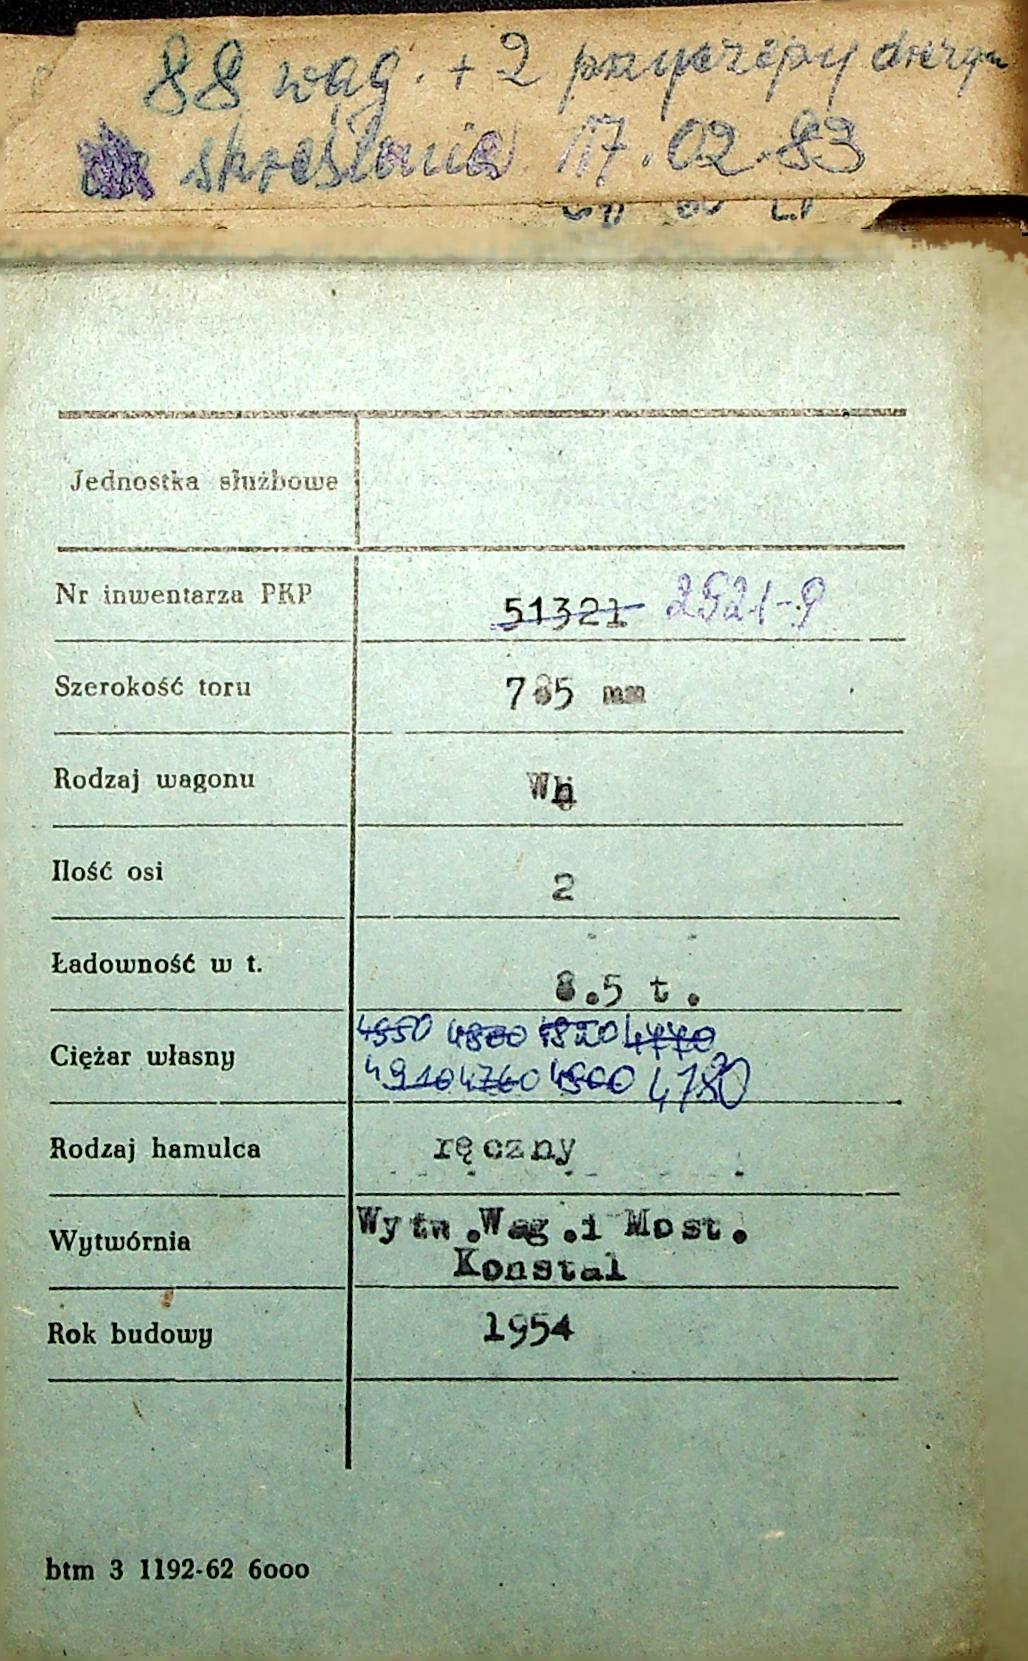 88 wag. + 2 przyczepy drezyn
skreślenie 17.02.83
Jednostka służbowa
Nr inwentarza PKP 51321 2921-9
Szerokość toru 785 mm
Rodzaj wagonu
Ilość osi 2
Ładowność w t. 8.5 t.
4550 4880 4820 4770
Ciężar własny
4910 4760 4900 4780
Rodzaj hamulca ręczny
Wytwórnia Wytw.Wag.i Most.
Konstal
Rok budowy 1954
btm 3 1192-62 6000